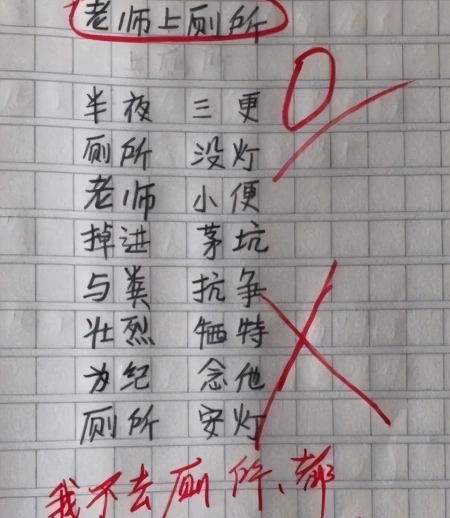 老师上厕所
半夜 三更
厕所 没灯
老师 小便
掉进 茅坑
与粪 抗争
壮烈 牺特
为纪 念他
厕所 安灯
我不去厕所、都